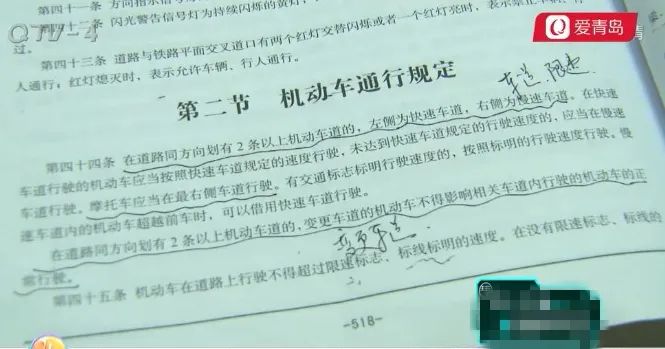 第四十一条 方向指示信号
QTV-4
爱青岛
第四十二条 闪光警告信号灯为持续闪烁的黄灯，
过。
第四十三条 道路与铁路平面交叉道口有两个红灯交替闪烁或者一个红灯亮时，表示禁止车辆、行
人通行；红灯熄灭时，表示允许车辆、行人通行。
第二节 机动车通行规定
车道、限速
第四十四条 在道路同方向划有2条以上机动车道的，左侧为快速车道，右侧为慢速车道。在快速
车道行驶的机动车应当按照快速车道规定的速度行驶，未达到快速车道规定的行驶速度的，应当在慢速
车道行驶。摩托车应当在最右侧车道行驶。有交通标志标明行驶速度的，按照标明的行驶速度行驶。慢
速车道内的机动车超越前车时，可以借用快速车道行驶。
在道路同方向划有2条以上机动车道的，变更车道的机动车不得影响相关车道内行驶的机动车的正
常行驶。
变更车道
第四十五条 机动车在道路上行驶不得超过限速标志、标线标明的速度。在没有限速标志、标线的
-518-